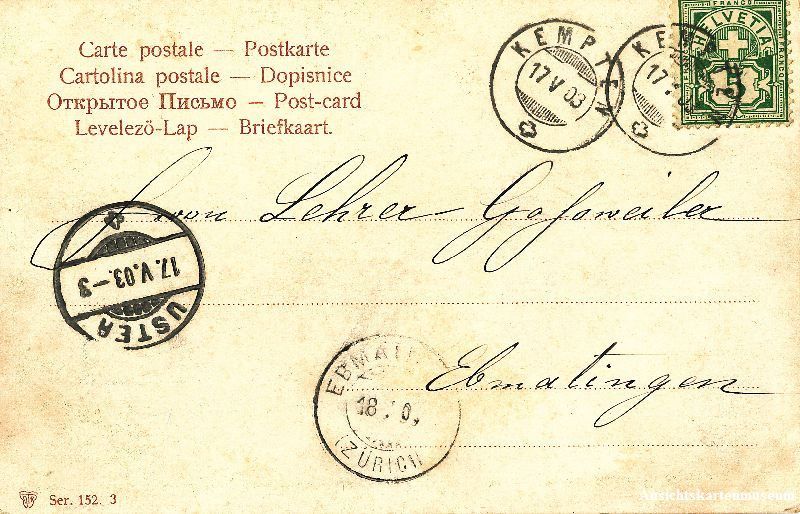 Carte postale — Postkarte
Cartolina postale — Dopisnice
Открытое Письмо — Post-card
Levelezö-Lap — Briefkaart.
KEMPTEN
17 V 03
KEMPTEN
17 V
HELVETIA
FRANCO
Lehrer Goßweiler
17.V.03.-3
USTER
Ebmatingen
EBMATI
18
(ZÜRICH)
Ser. 152. 3
Ansichtskartenmuseum